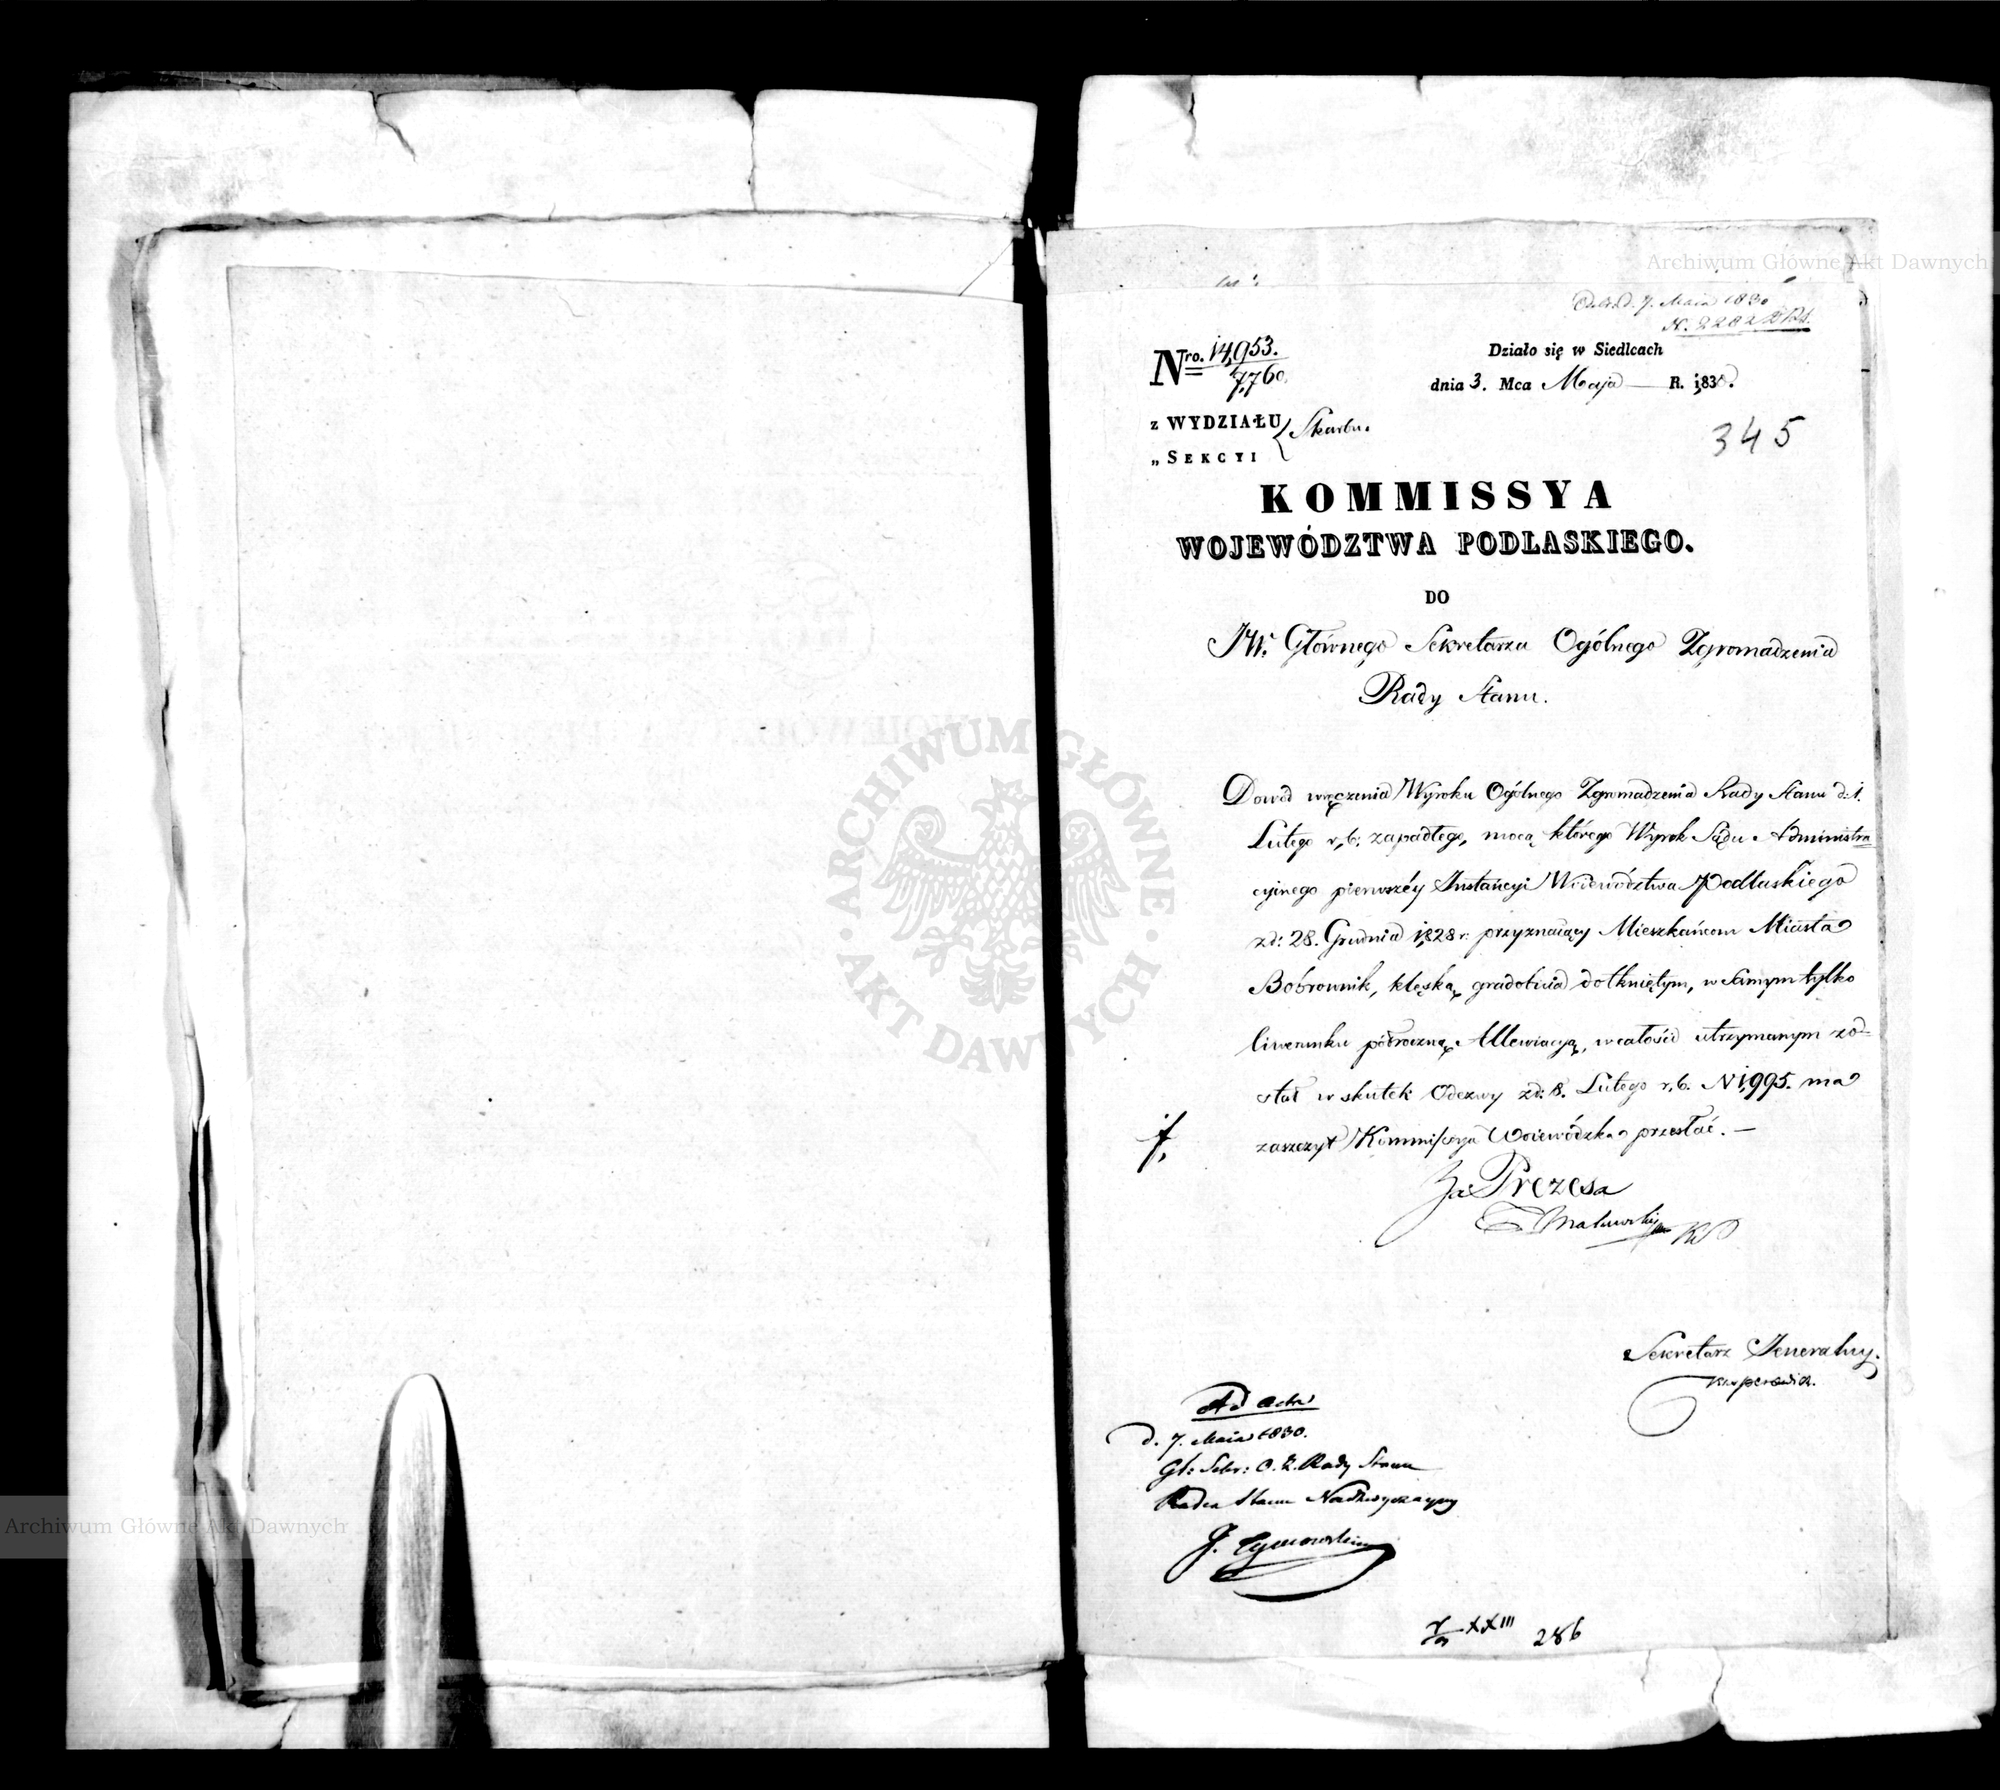 Odebr. d. 7. Maia 1830
N. 2282
Nro. 14,953.
7,760.
Działo się w Siedlcach
dnia 3. Mca Maja — R. 1830.
z WYDZIAŁU
„ SEKCYI
Skarbu.
345
KOMMISSYA
WOJEWÓDZTWA PODLASKIEGO.
DO
JW. Głównego Sekretarza Ogólnego Zgromadzenia
Rady Stanu.
Dowód wręczenia Wyroku Ogólnego Zgromadzenia Rady Stanu d: 1.
Lutego r, b; zapadłego, mocą którego Wyrok Sądu Administra
cyjnego pierwszéy Instancyi Woiewództwa Podlaskiego
z d: 28. Grudnia 1828 r: przyznaiący Mieszkańcom Miasta
Bobrownik, klęską gradobicia dotkniętym, w samym tylko
liwerunku półroczną Allewiacyą, w całości utrzymanym zo=
stał w skutek Odezwy z d: 8. Lutego r, b. N 1,995. ma
zaszczyt Kommissya Woiewódzka przesłać. —
Za Prezesa
Sekretarz Jeneralny.
Ad acta
d. 7. Maia 1830.
Gł: Sekr: O. Z. Rady Stanu
Radca Stanu Nadzwyczayny
J. Tymowski
XXIII 286
ARCHIWUM GŁÓWNE
AKT DAWNYCH
Archiwum Główne Akt Dawnych
Archiwum Główne Akt Dawnych